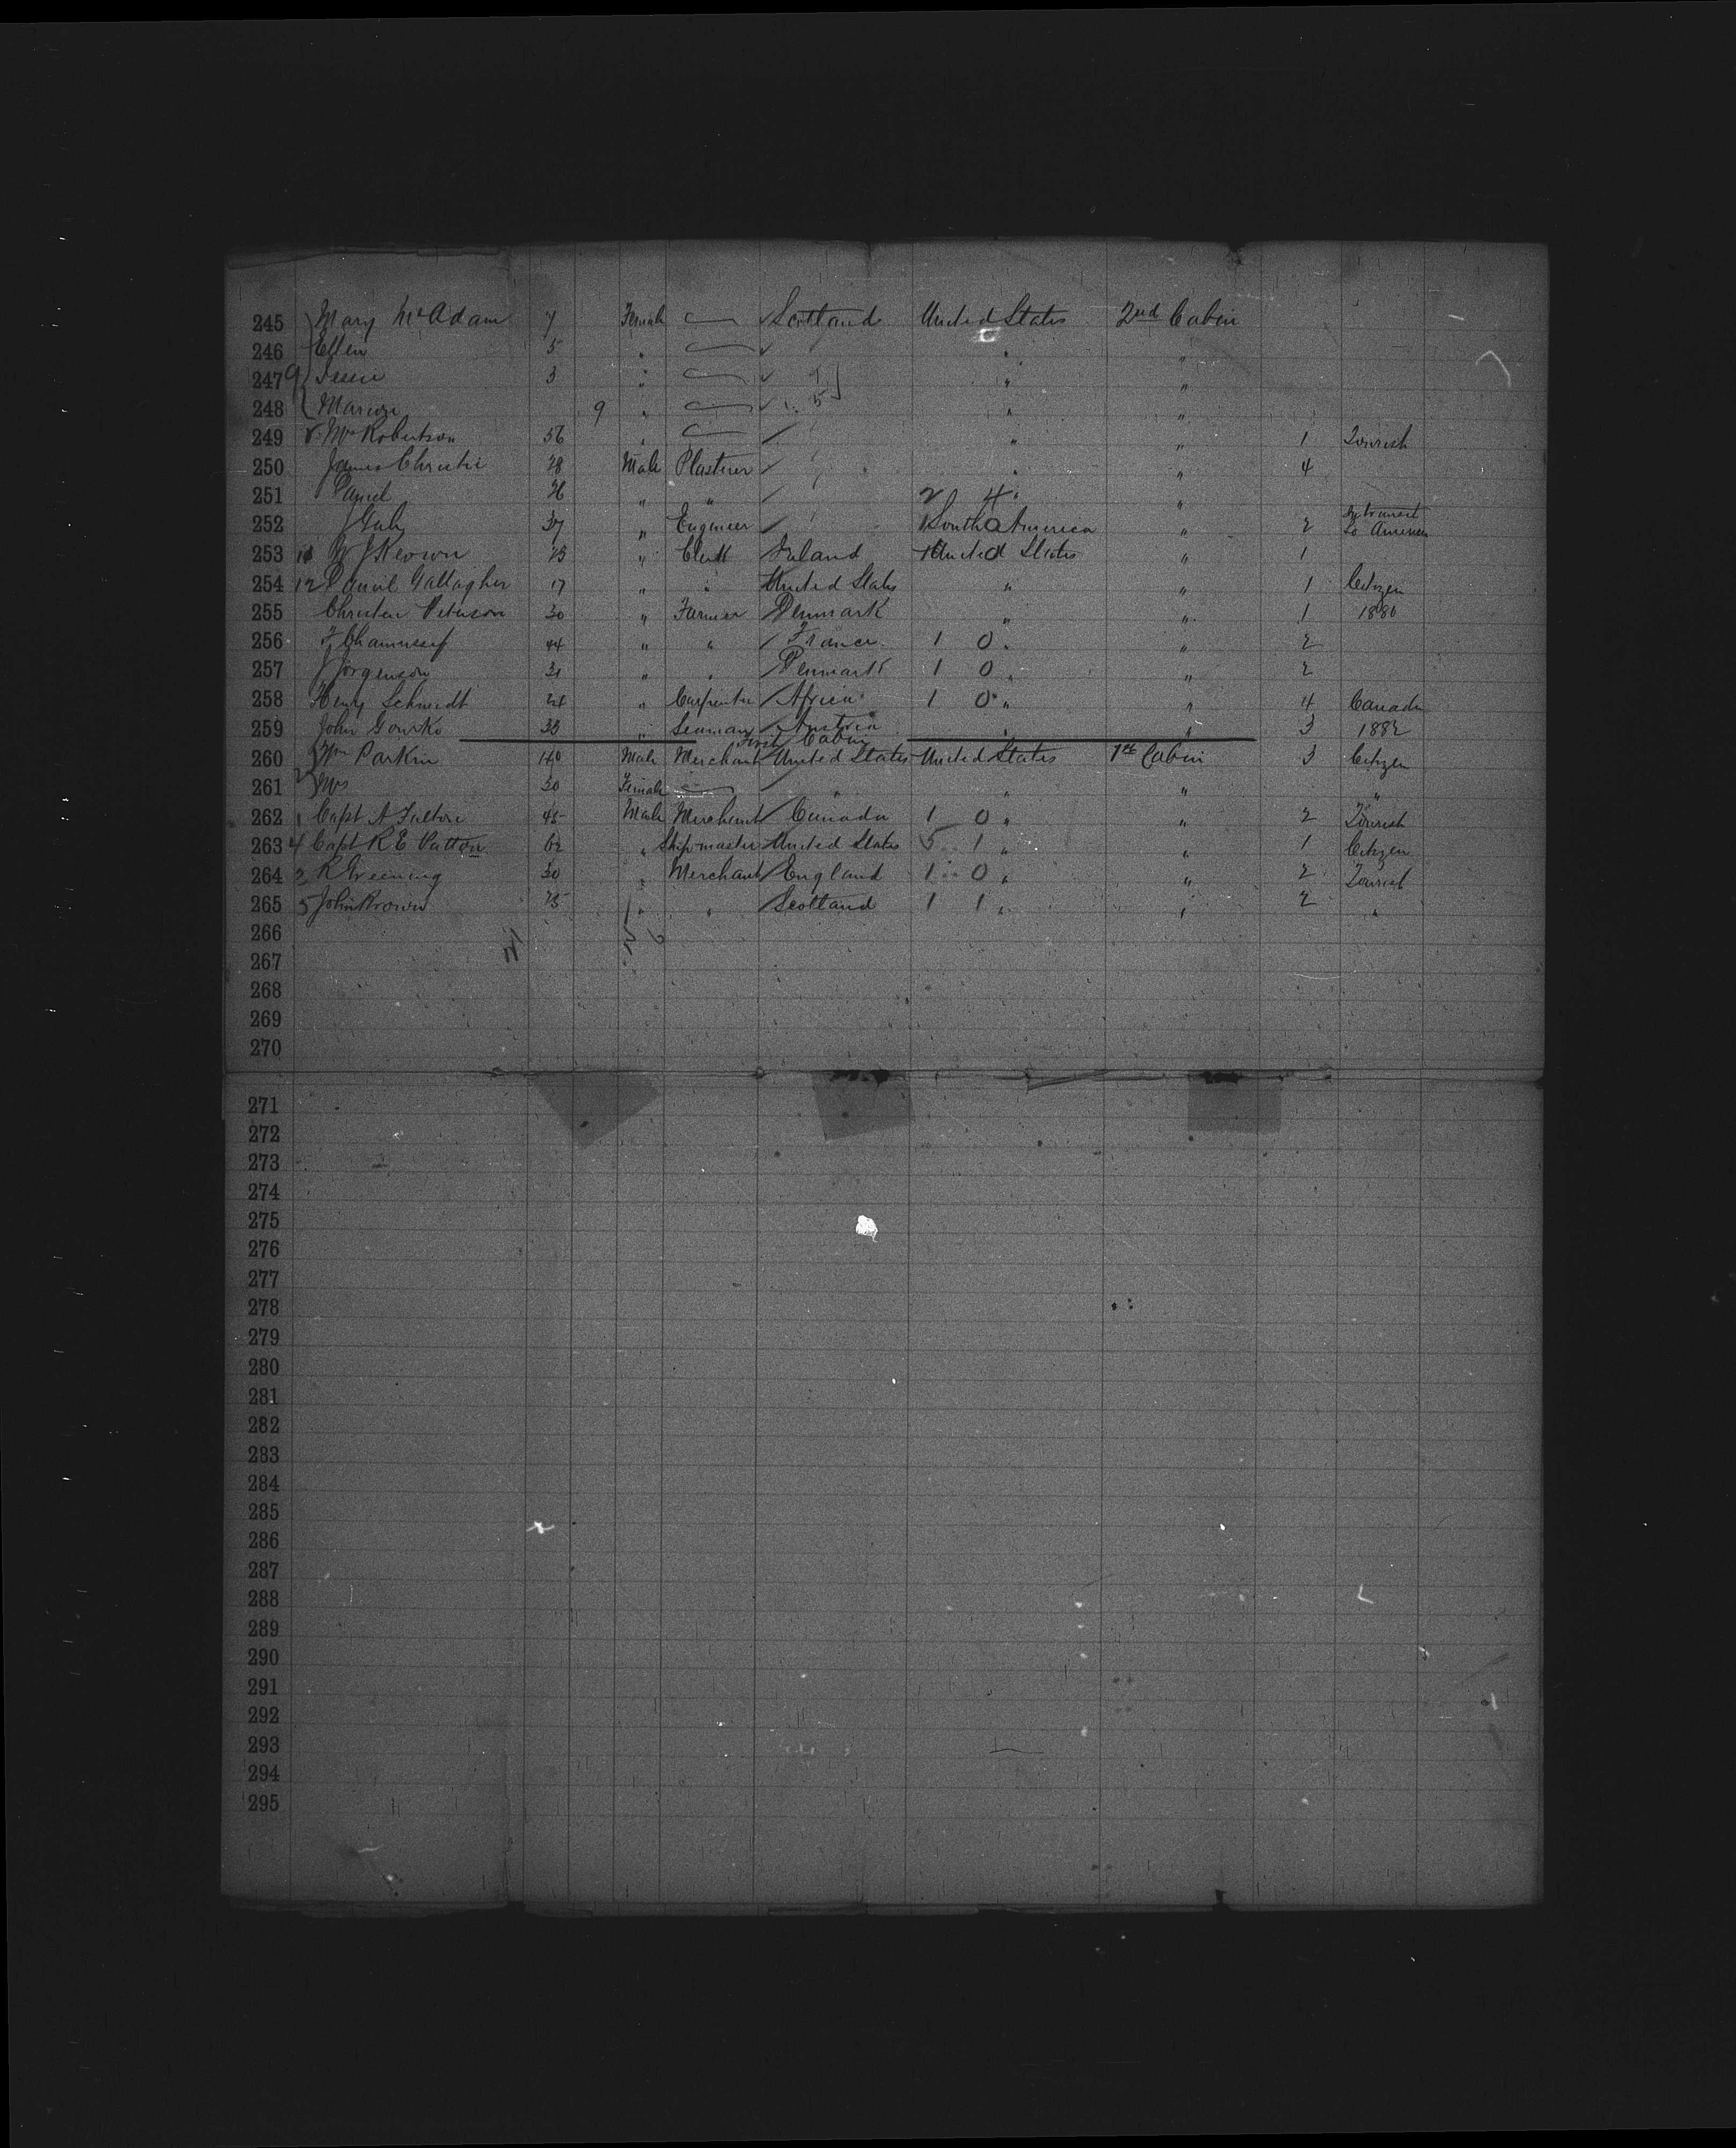 245 Mary McAdam 7 Female Scotland United States 2nd Cabin
246 Ellen 5 " " "
247 9 Jessie 3 " " "
248 Marion 9 " " "
249 Mrs Robertson 56 " " " 1 Tourist
250 James Christie 28 Male Plasterer " " 4
251 Daniel 26 " " 2 4 " "
252 J 37 " Engineer South America " 2 In transit to America
253 W J Keown 23 " Clerk Ireland United States 1
254 12 Daniel Gallagher 17 " " United States " " 1 Citizen
255 Christen Peterson 30 " Farmer Denmark " " 1 1880
256 44 " " France 1 0 " " 2
257 J Jorgenson 31 " " Denmark 1 0 " " 2
258 Henry Schmidt 24 " Carpenter Africa 1 0 " " 4 Canada
259 John Gourko 33 " Seaman Austria " " 3 1882
First Cabin
260 Wm Parkin 40 Male Merchant United States United States 1st Cabin 3 Citizen
261 Mrs 30 Female " " " "
262 1 Capt A Fulton 45 Male Merchant Canada 1 0 " " 2 Tourist
263 4 Capt R E Patton 62 " Shipmaster United States 5 1 " " 1 Citizen
264 R Greening 30 " Merchant England 1 0 " " 2 Tourist
265 5 John Brown 25 " " Scotland 1 1 " " 2 "
266
267
268
269
270
271
272
273
274
275
276
277
278
279
280
281
282
283
284
285
286
287
288
289
290
291
292
293
294
295